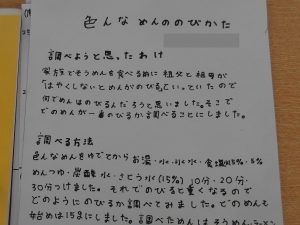 色んなめんののびかた
調べようと思ったわけ
家族でそうめんを食べる時に祖父と祖母が
「はやくしないとめんがのびる」といっていたので
何でめんはのびるんだろうと思いました。そこで
どのめんが一番のびるか調べることにしました。
調べる方法
色んなめんをゆでてからお湯・水・氷水・食塩水5%・5%
めんつゆ・炭酸水・さとう水(15%)10分・20分・
30分つけました。それでのびると重くなるので
どのようにのびるか調べてみました。どのめんも
始めは15gにしました。調べためんはそうめん・ラーメン